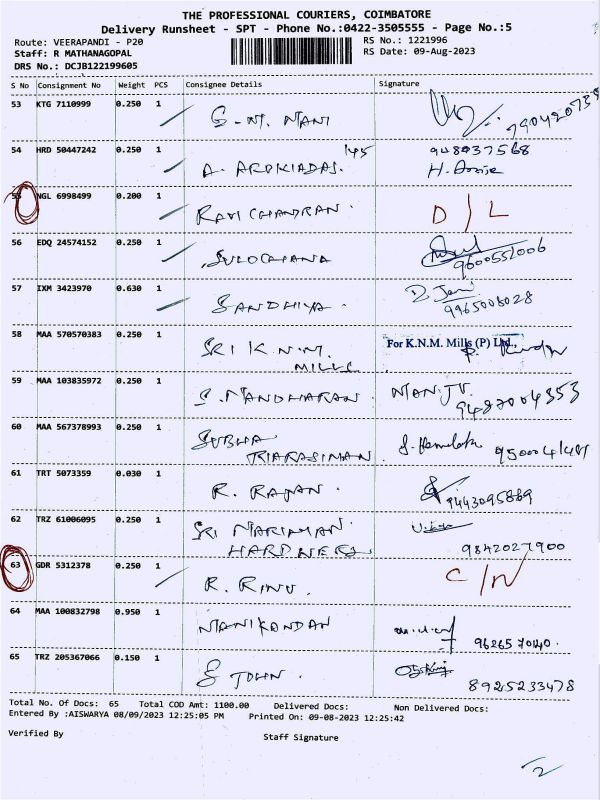 THE PROFESSIONAL COURIERS, COIMBATORE
Delivery Runsheet - SPT - Phone No.:0422-3505555 - Page No.:5
Route: VEERAPANDI - P20 RS No.: 1221996
Staff: R MATHANAGOPAL RS Date: 09-Aug-2023
DRS No.: DCJB122199605
S No Consignment No Weight PCS Consignee Details Signature
53 KTG 7110999 0.250 1 G-M. MANI
54 HRD 50447242 0.250 1 A. AROKIADAS. 145 948937568
55 NGL 6998499 0.200 1 RAVI CHANDRAN. D/L
56 EDQ 24574152 0.250 1 SULOCHANA 9600552006
57 IXM 3423970 0.630 1 SANDHIYA. 9965008028
58 MAA 570570383 0.250 1 SRI K.N.M. For K.N.M. Mills (P) Ltd.,
MILLS
59 MAA 103835972 0.250 1 S. MANOHARAN MANJU. 9487004353
60 MAA 567378993 0.250 1 SUBHA
61 TRT 5073359 0.030 1 R. RAJAN. 9443095869
62 TRZ 61006095 0.250 1 SRI NARIMAN 9842027900
63 GDR 5312378 0.250 1 R. RINU. C/N
64 MAA 100832798 0.950 1 MANIKANDAN 9626570140.
65 TRZ 205367066 0.150 1 S JOHN. 8925233478
Total No. Of Docs: 65 Total COD Amt: 1100.00 Delivered Docs: Non Delivered Docs:
Entered By :AISWARYA 08/09/2023 12:25:05 PM Printed On: 09-08-2023 12:25:42
Verified By Staff Signature